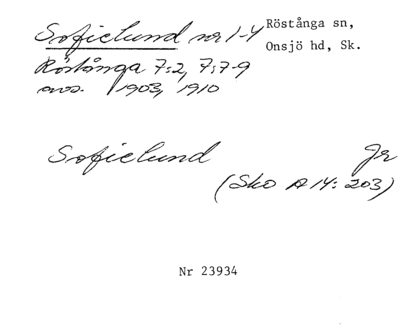 Sofielund nr 1-4 Röstånga sn,
Onsjö hd, Sk.
Röstånga 7:2, 7:7-9
avs. 1903, 1910
Sofielund Jr
(Sko A 14: 203)
Nr 23934